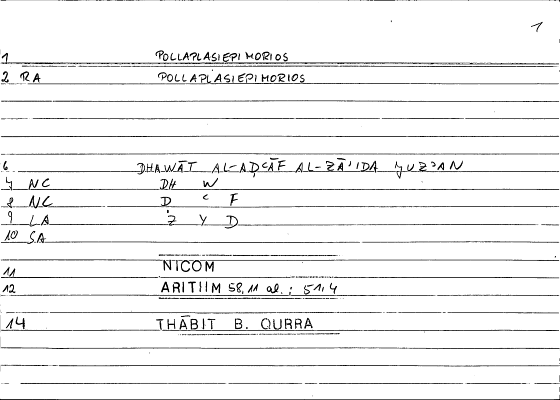 1
1 POLLAPLASIEPIMORIOS
2 RA POLLAPLASIEPIMORIOS
6 DHAWĀT AL-AḌʿĀF AL-ZĀʾIDA ǦUZʾAN
7 NC DH W
8 NC Ḍ ʿ F
9 LA Z Y D
10 SA
11 NICOM
12 ARITHM 58,11 al.; 51,4
14 THĀBIT B. QURRA